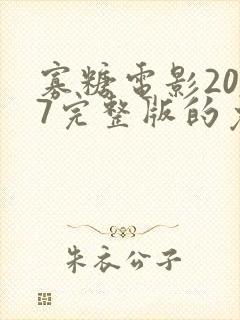 寡糖电影20
7完整版的
朱衣公子